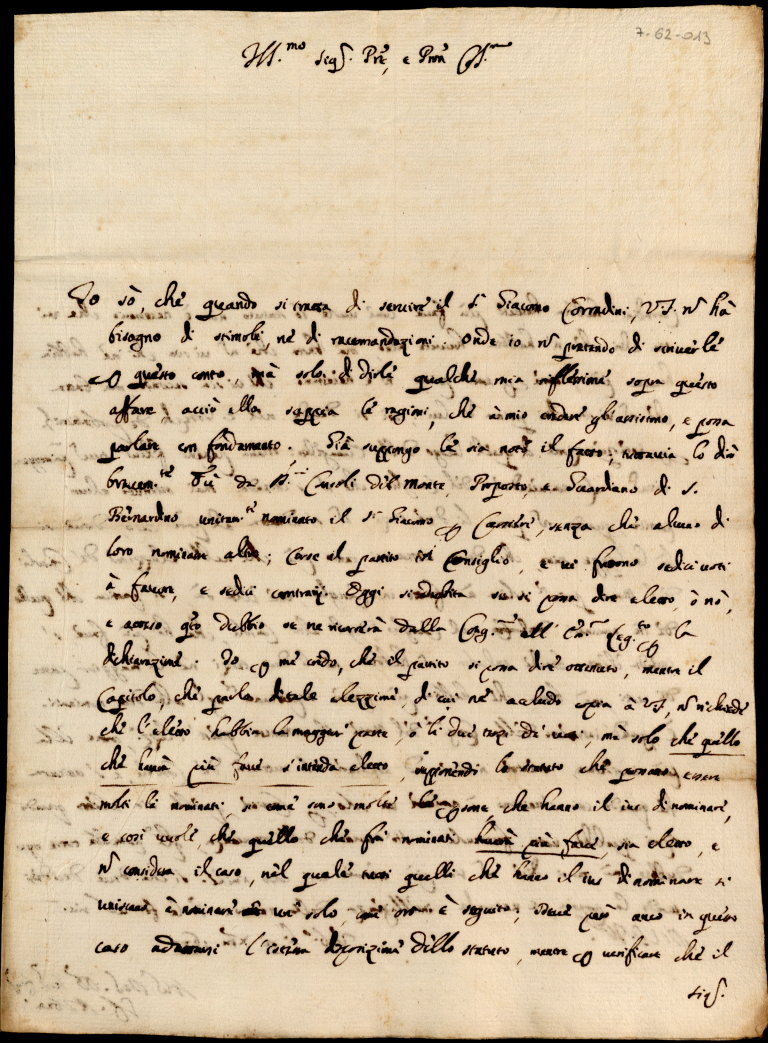 7-62-013
Ill.mo Sig.r Pre, e Pron
Io sò, che quando si tratta di servire il S.r Giacomo Corradini, V.S. nō hà
bisogno di stimoli, ne di racomandazioni. Onde io nō pretendo di scriverle
questo conto, mà solo di dirle qualche mia riflessione sopra questo
affare, acciò ella sappia le ragioni, che à mio credere gli assistono, e possa
parlare con fondamento. Già suppongo le sia noto il fatto; tuttavia lo dirò
brevem.te Fù da S.ri Consoli del Monte, Proposto, e Guardiano di S.
Bernardino unitam.te nominato il S.r Giacomo Corriere, senza che alcuno di
loro nominasse altri; Corse al partito nel Consiglio, e vi furono sedici voti
à favore, e sedici contrarij. Oggi si dubita se si possa dire eletto, ò nò,
e sopra q̃to dubbio se ne ricorrerà dalla Cong.ne all' Em. Leg.to la
dichiarazione. Io me credo, che il partito si possa dire ottenuto, mentre il
Capitolo, che parla di tale elezzione, di cui ne accludo copia à V.S, nō richiede
che l'eletto habbia la maggior parte, ò li due terzi de voti, mà solo che quello
che haverà più fave s'intenda eletto, supponendo lo statuto che possano essere
molti li nominati, si come sono molte le che hanno il ius di nominare,
e così vuole che quello che frà nominati haverà più fave, sia eletto, e
nō considera il caso, nel quale tutti quelli che hanno il ius di nominare si
uniscano à nominare un solo come ora è seguito; deve però anco in questo
caso adattarsi l'istessa disposizione dello statuto, mentre verificare che il
Sig.r